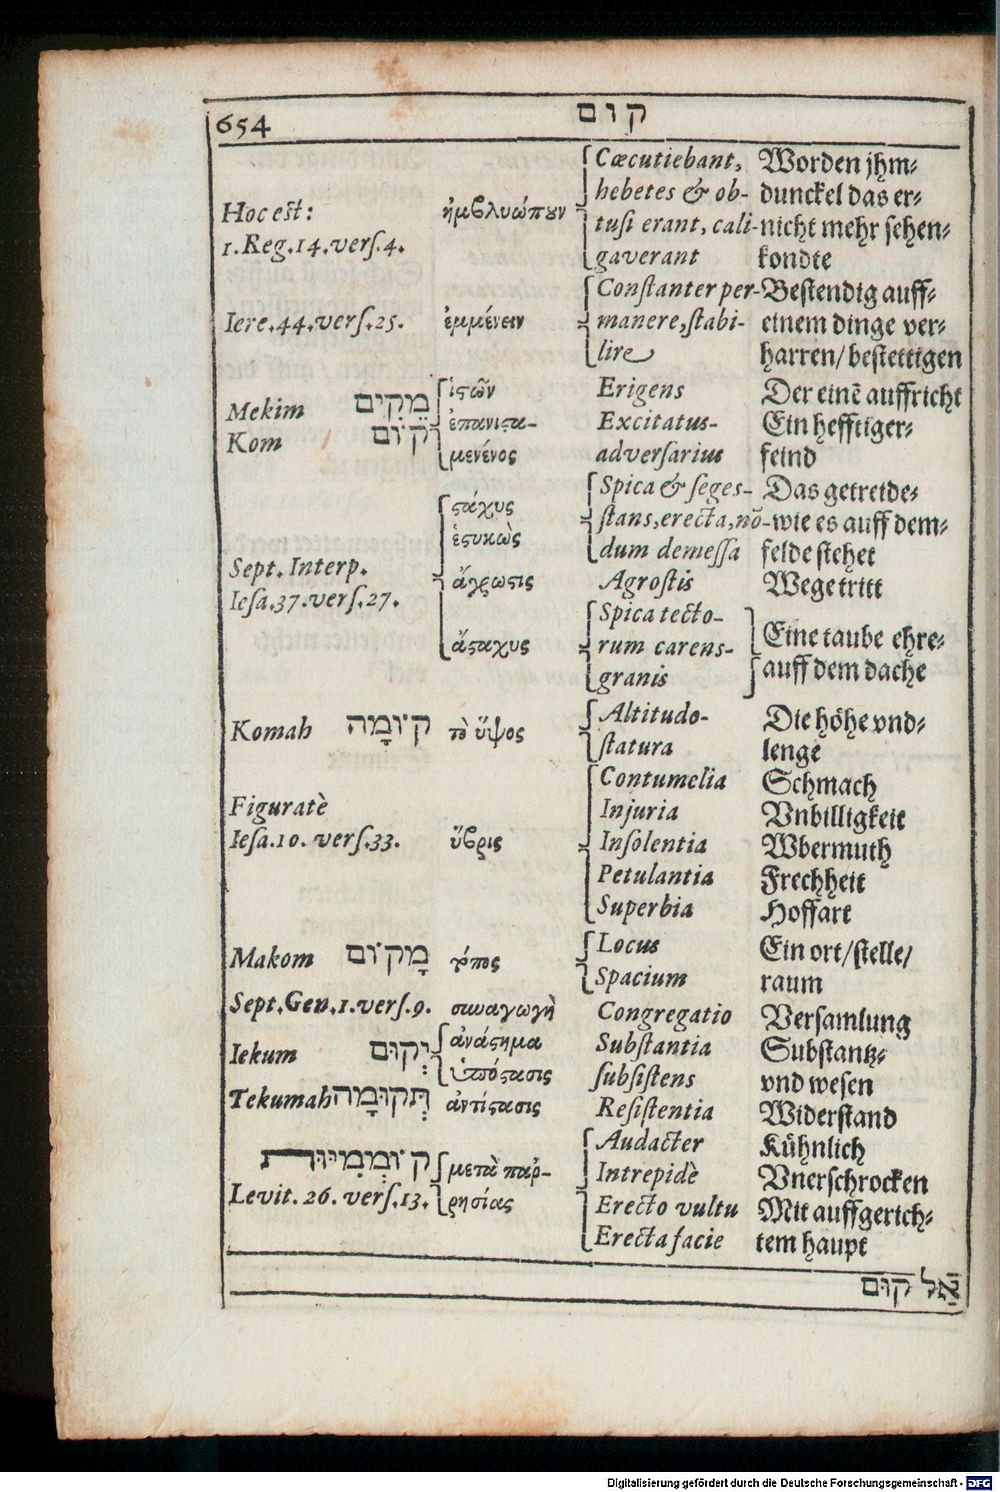 654
קום
Hoc est:
1. Reg. 14. vers. 4.
ἠμβλυώπουν
Cæcutiebant,
hebetes & ob-
tusi erant, cali-
gaverant
Worden jhm-
dunckel das er-
nicht mehr sehen-
kondte
Iere. 44. vers. 25.
ἐμμένειν
Constanter per-
manere, stabi-
lire
Bestendig auff-
einem dinge ver-
harren/ bestettigen
Mekim מֵקִים
Kom קוֹם
ἱστῶν
ἐπανιστα-
μενένος
Erigens
Excitatus-
adversarius
Der einē auffricht
Ein hefftiger-
feind
Sept. Interp.
Iesa. 37. vers. 27.
στάχυς
ἑστυκὼς
Spica & seges-
stans, erecta, nō-
dum demessa
Das getreide-
wie es auff dem-
felde stehet
ἄγρωστις
Agrostis
Wegetritt
ἄσταχυς
Spica tecto-
rum carens-
granis
Eine taube ehre-
auff dem dache
Komah קוֹמָה
τὸ ὕψος
Altitudo-
statura
Die höhe vnd-
lenge
Figuratè
Iesa. 10. vers. 33.
ὕβρις
Contumelia
Injuria
Insolentia
Petulantia
Superbia
Schmach
Vnbilligkeit
Wbermuth
Frechheit
Hoffart
Makom מָקוֹם
τόπος
Locus
Spacium
Ein ort/ stelle/
raum
Sept. Gen. 1. vers. 9.
συναγωγὴ
Congregatio
Versamlung
Iekum יְקוּם
ἀνάστημα
ὑπόστασις
Substantia
subsistens
Substantz-
vnd wesen
Tekumah תְּקוּמָה
ἀντίστασις
Resistentia
Widerstand
קוֹמְמִיּוּת
Levit. 26. vers. 13.
μετὰ παῤ-
ρησίας
Audacter
Intrepidè
Erecto vultu
Erecta facie
Kühnlich
Vnerschrocken
Mit auffgerich-
tem haupt
אַל קוּם
Digitalisierung gefördert durch die Deutsche Forschungsgemeinschaft - DFG